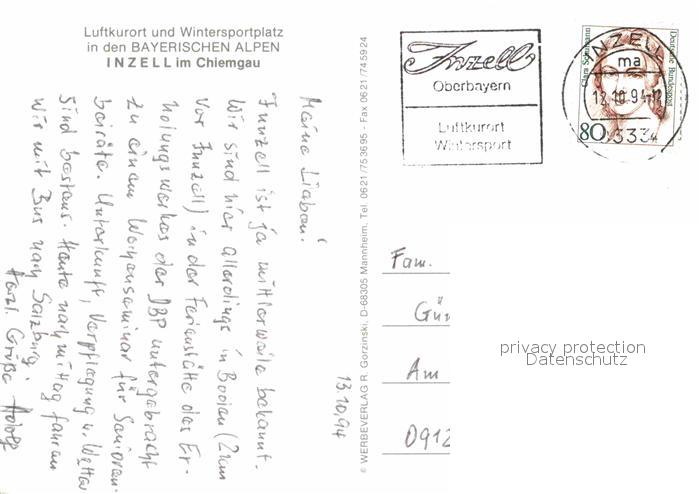 Luftkurort und Wintersportplatz
in den BAYERISCHEN ALPEN
INZELL im Chiemgau
13.10.94
Meine Lieben!
Innzell ist ja mittlerweile bekannt.
Wir sind hier allerdings in Boden (2 km
vor Innzell) in der Ferienstätte des Er-
holungswerkes der DBP untergebracht
zu einem Wochenseminar für Senioren-
beiräte. Unterkunft, Verpflegung u. Wetter
sind bestens. Heute nachmittag fahren
wir mit Bus nach Salzburg.
Herzl. Grüße
© WERBEVERLAG R. Gorzinski, D-68305 Mannheim, Tel. 0621/753695 - Fax 0621/745924
Inzell
Oberbayern
Luftkurort
Wintersport
INZELL
ma
10.94-12
8333
Clara Schumann
Deutsche Bundespost
80
Fam.
Gün
Am
0912
privacy protection
Datenschutz